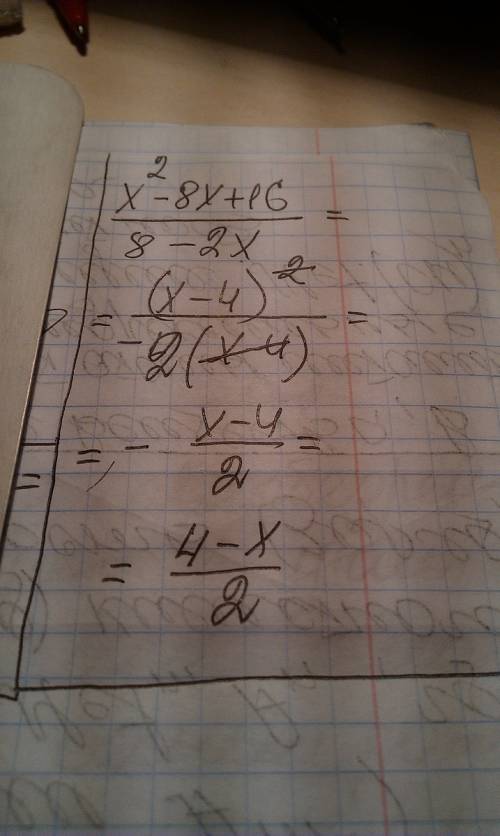 x² - 8x + 16
8 - 2x
=
= (x - 4)²
-2(x - 4)
=
= - x - 4
2
=
= 4 - x
2